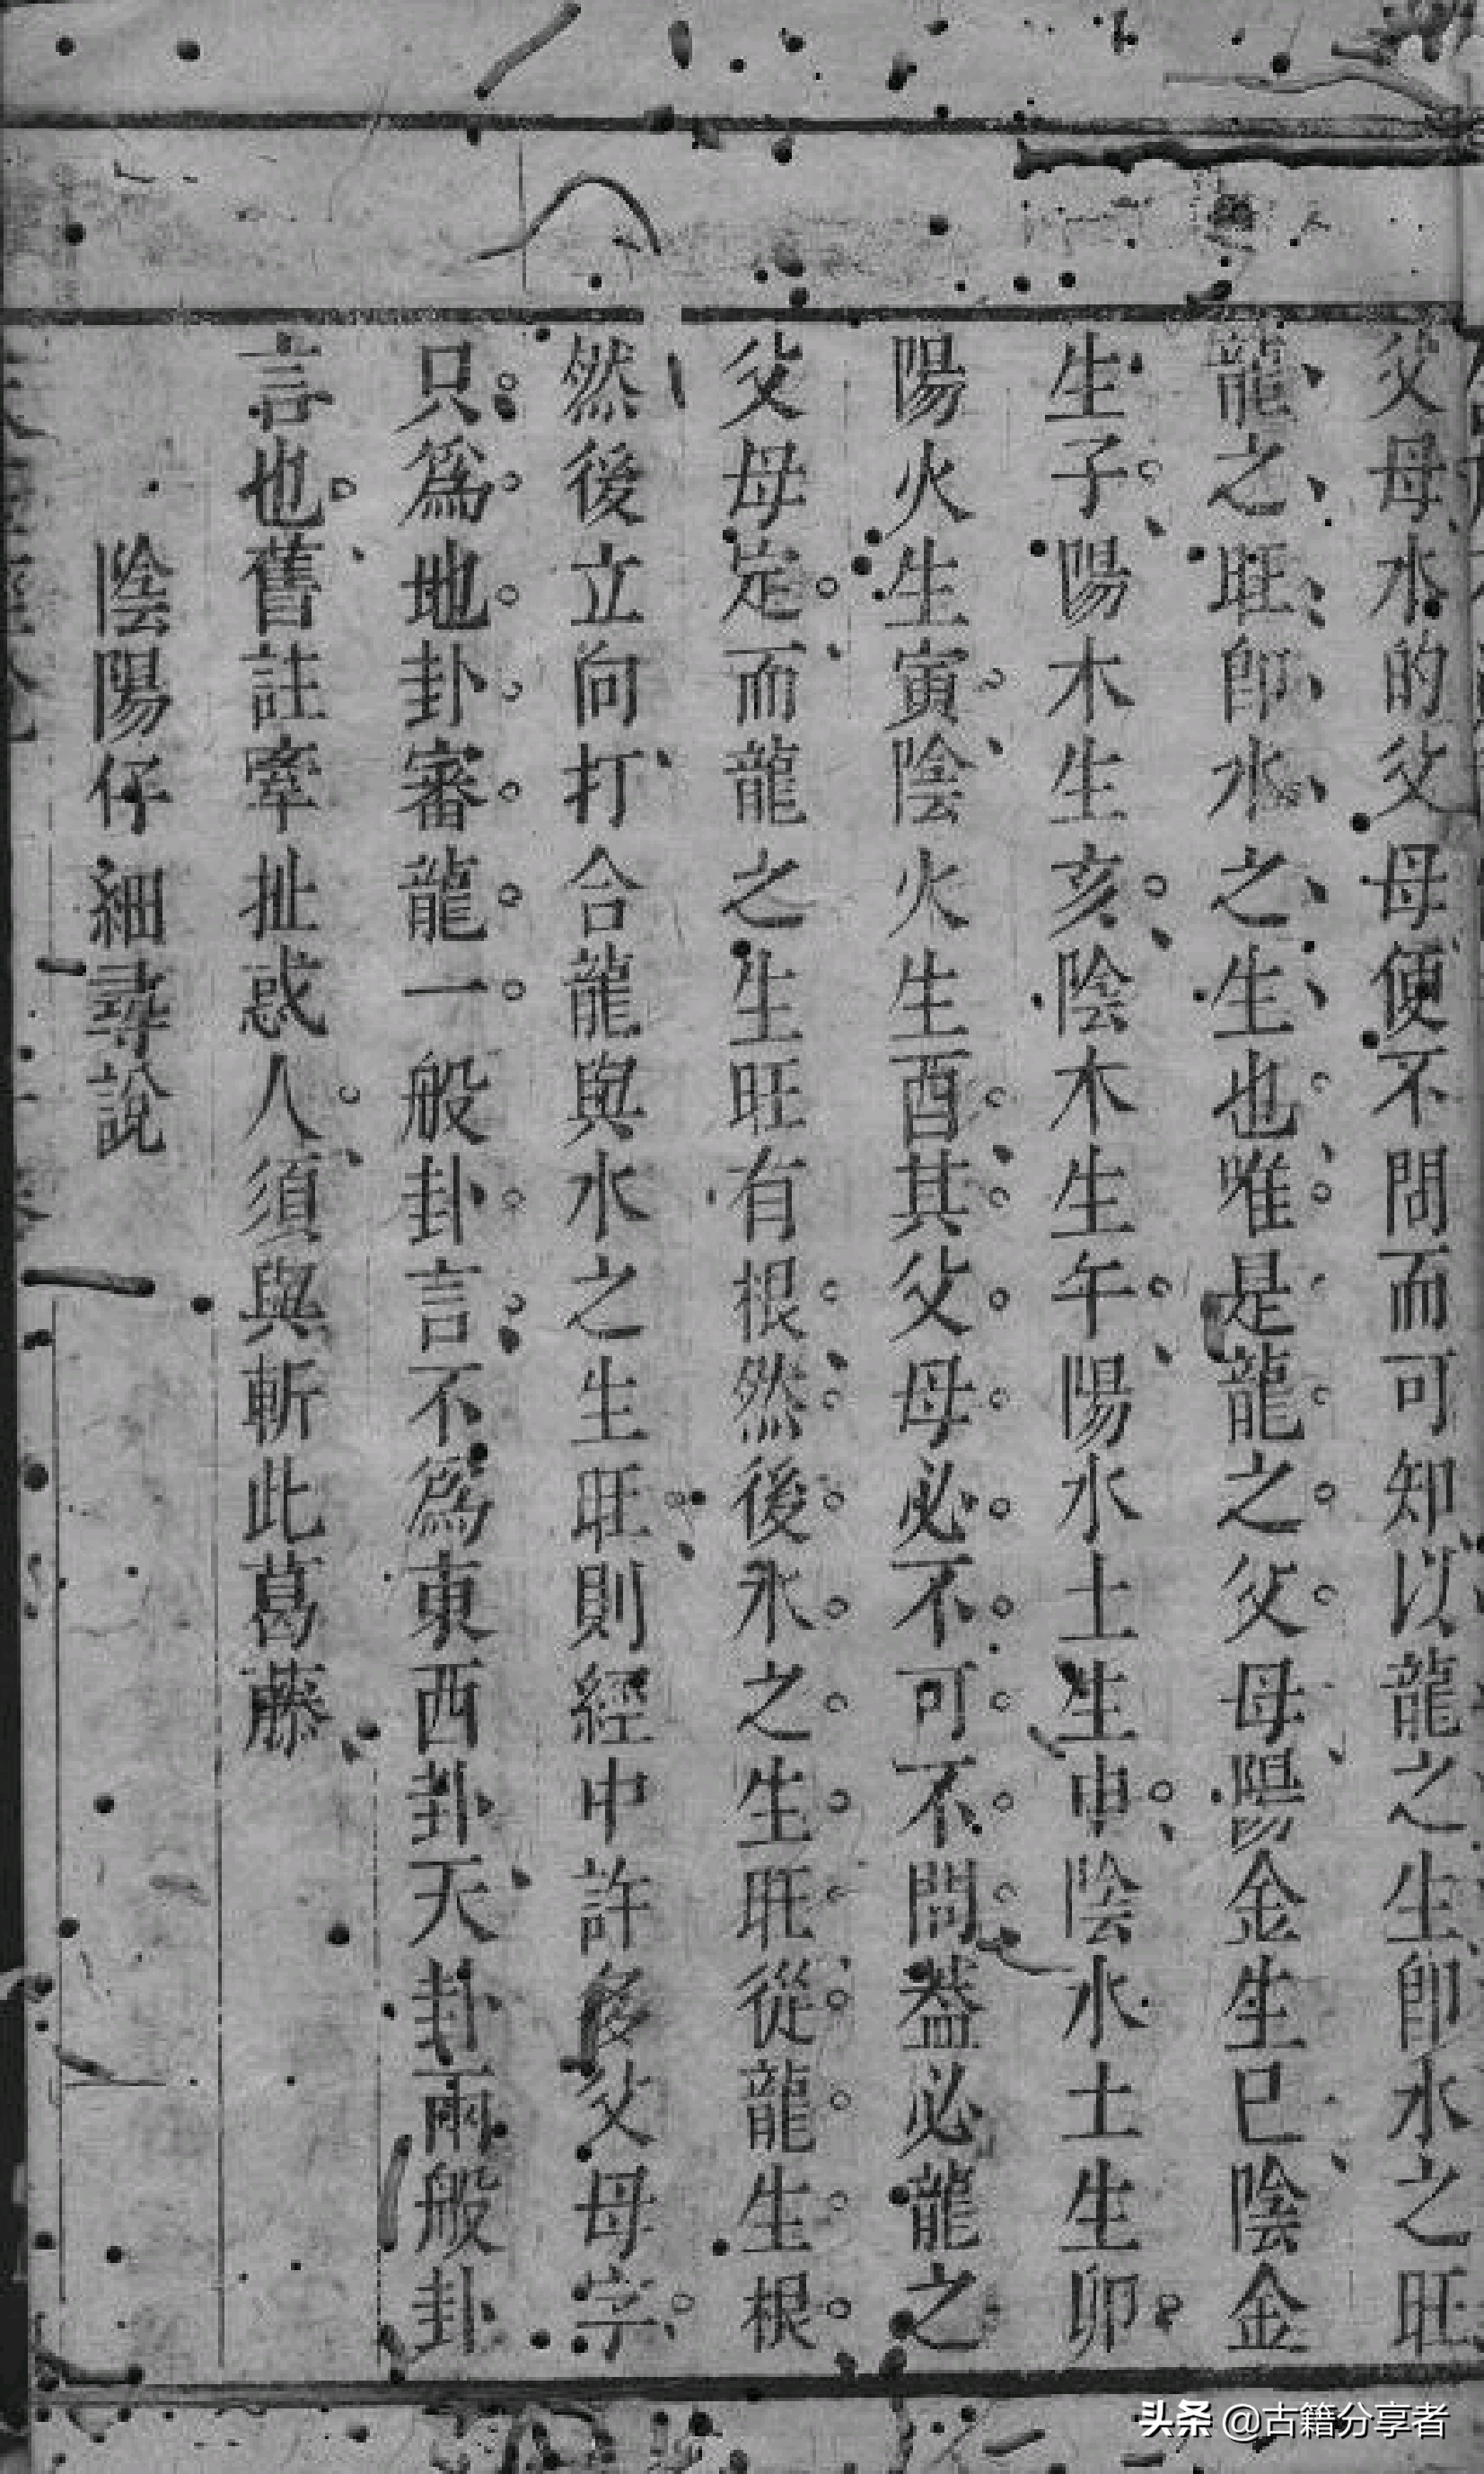 父母水的父母便不問而可知以龍之生即水之旺
龍之旺即水之生也唯是龍之父母陽金生巳陰金
生子陽木生亥陰木生午陽水土生申陰水土生卯
陽火生寅陰火生酉其父母必不可不問葢必龍之
父母定而龍之生旺有根然後水之生旺從龍生根
然後立向打合龍與水之生旺則經中許多父母字
只爲地卦審龍一般卦言不爲東西卦天卦兩般卦
言也舊註牽扯惑人須與斬此葛藤
陰陽仔細尋說
头条 @古籍分享者